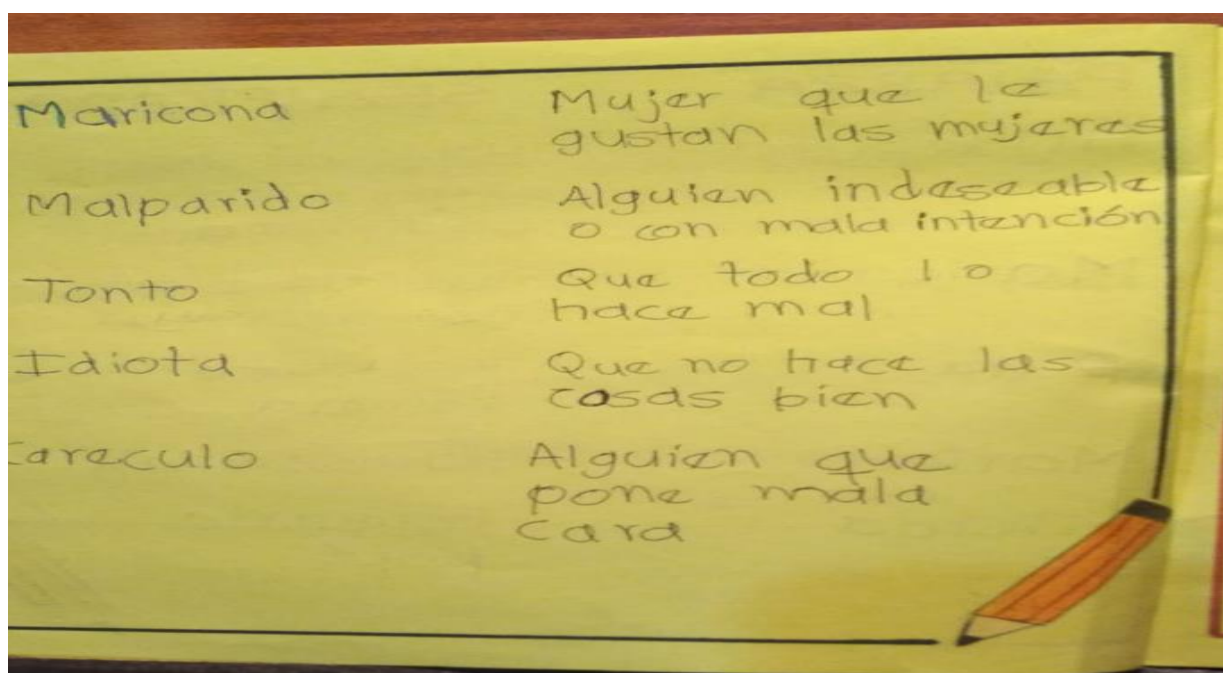 Maricona Mujer que le
gustan las mujeres
Malparido Alguien indeseable
o con mala intención
Tonto Que todo lo
hace mal
Idiota Que no hace las
cosas bien
Careculo Alguien que
pone mala
cara